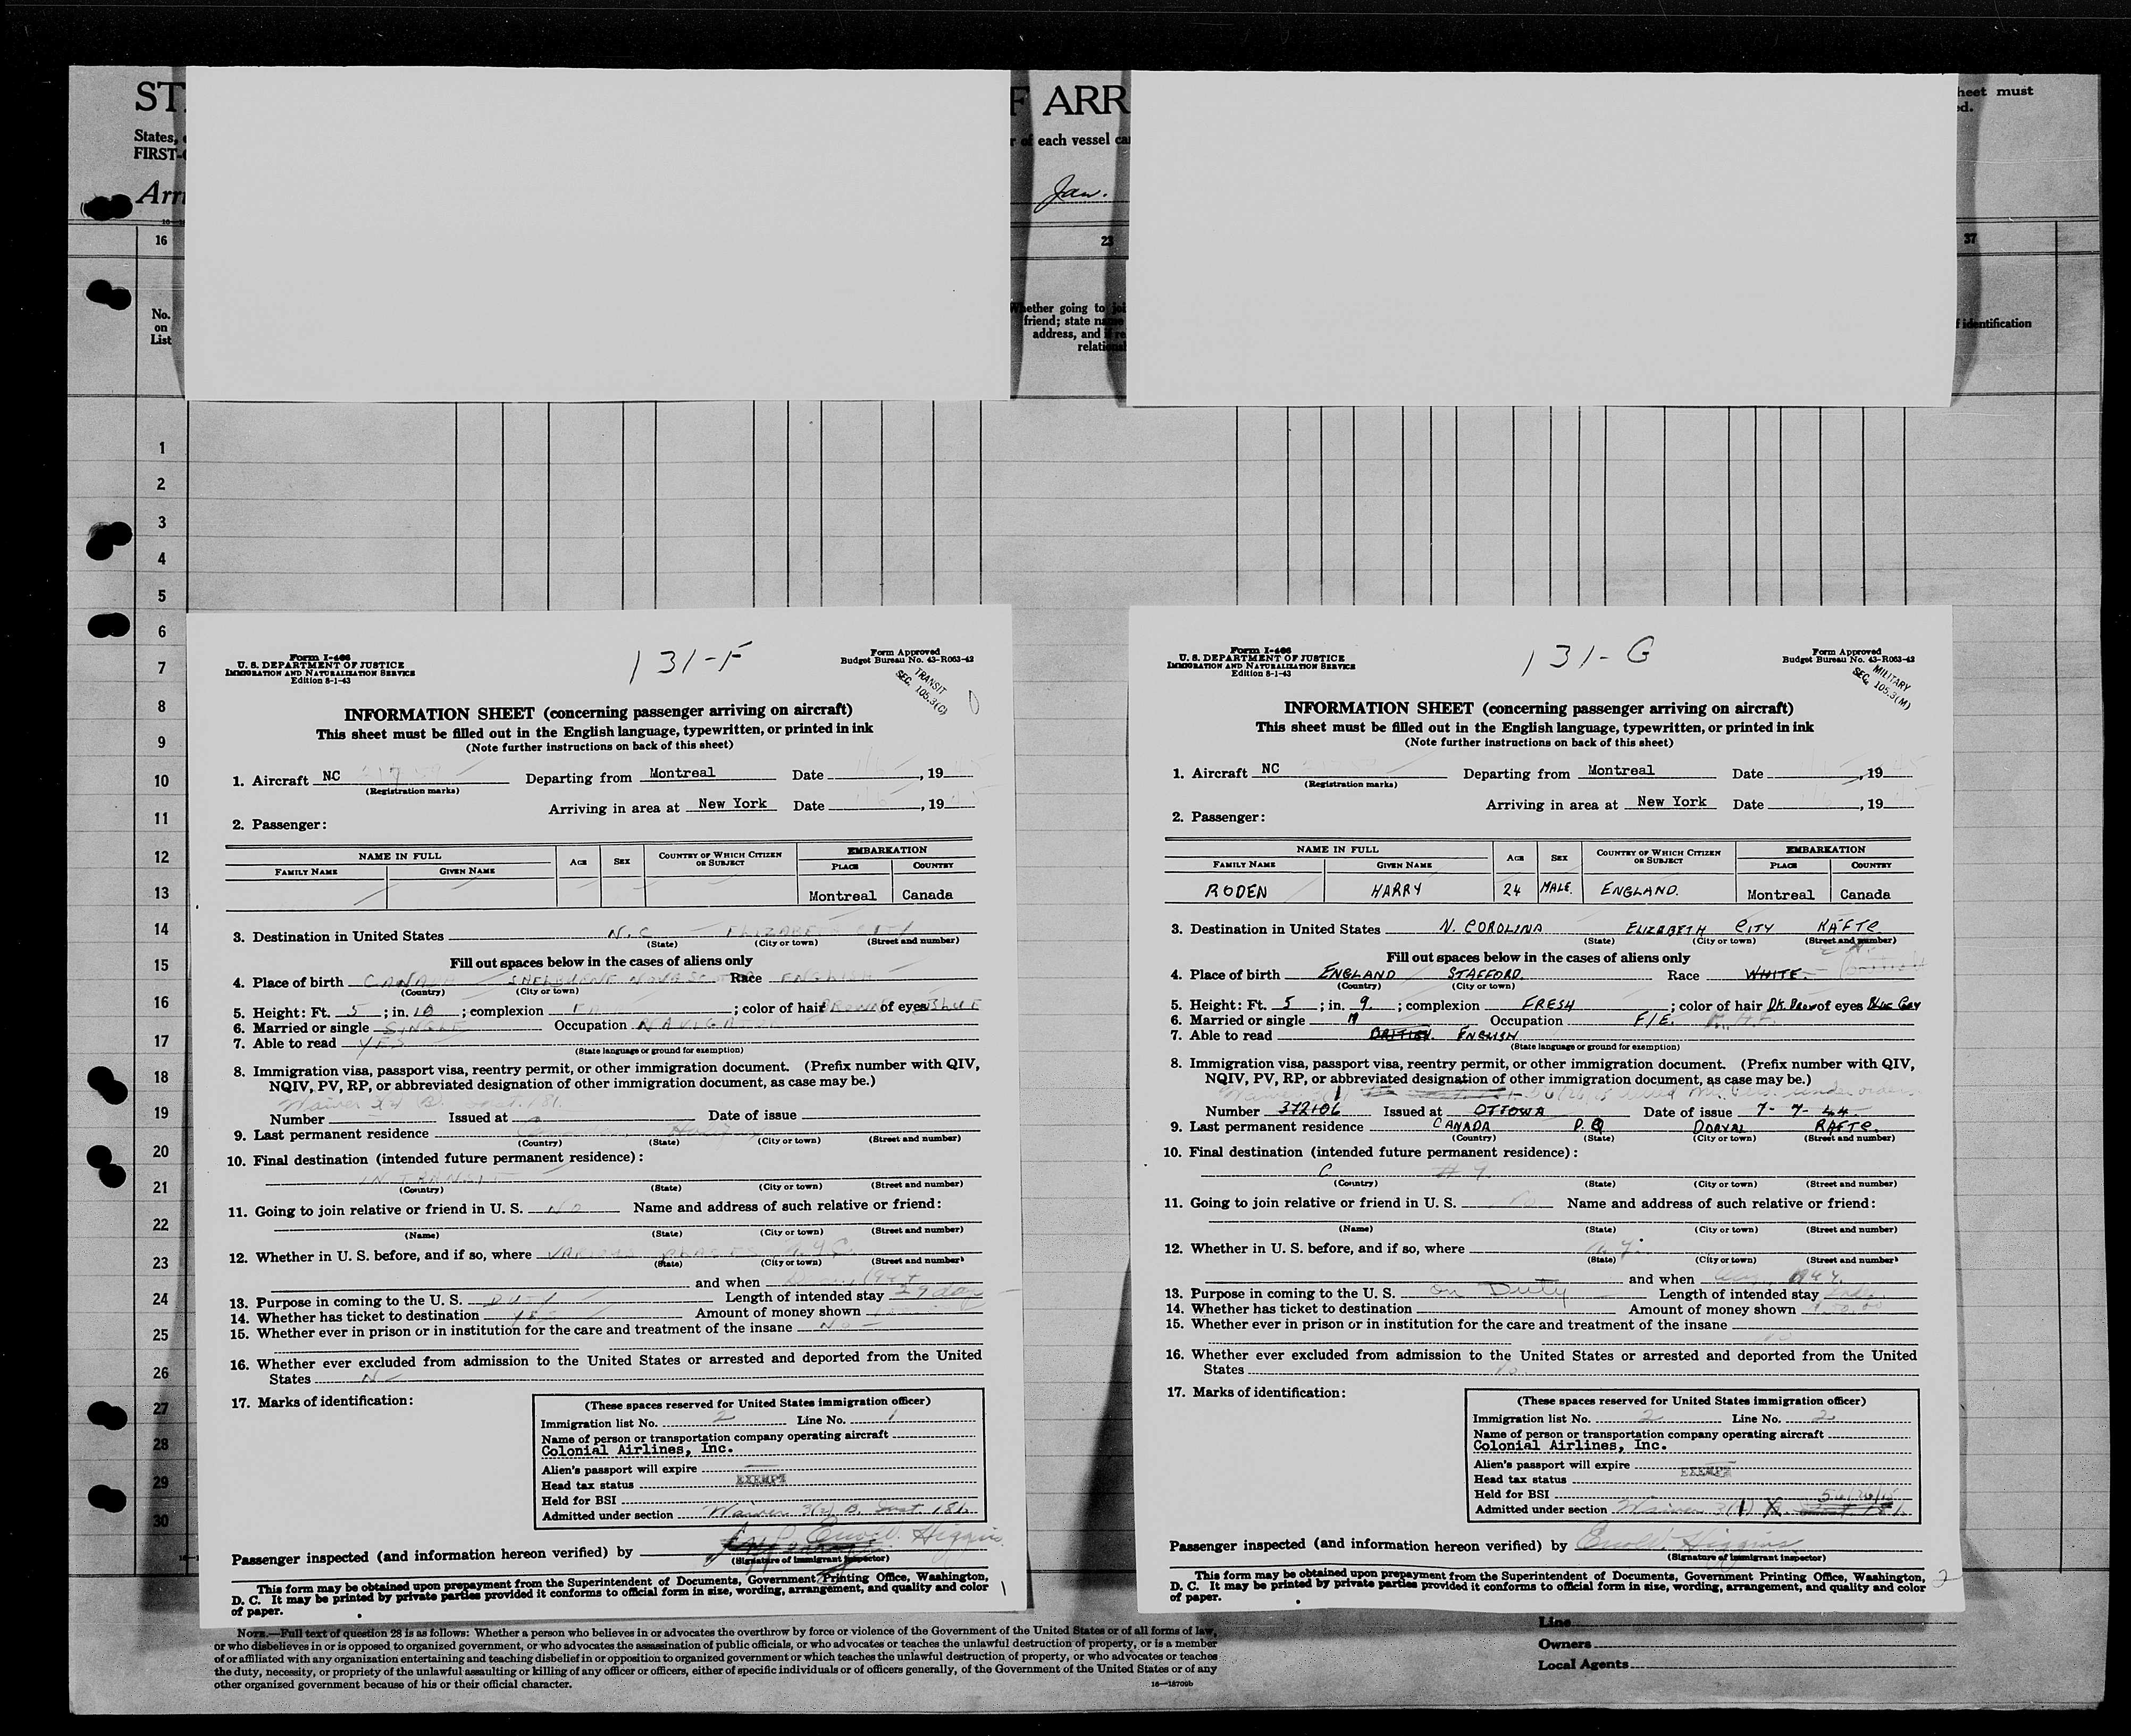 ST
F ARR
heet must
ed.
States,
r of each vessel
FIRST-
Arri
Jan.
16
23
37
No.
on
List
Whether going to
friend; state
address, and
f identification
1
2
3
4
5
6
7
8
9
10
11
12
13
14
15
16
17
18
19
20
21
22
23
24
25
26
27
28
29
30
Form I-466
U. S. DEPARTMENT OF JUSTICE
IMMIGRATION AND NATURALIZATION SERVICE
Edition 8-1-43
131-F
Form Approved
Budget Bureau No. 43-R063-42
TRANSIT
SEC. 105.3(C)
INFORMATION SHEET (concerning passenger arriving on aircraft)
This sheet must be filled out in the English language, typewritten, or printed in ink
(Note further instructions on back of this sheet)
1. Aircraft NC Departing from Montreal Date , 19
(Registration marks)
Arriving in area at New York Date , 19
2. Passenger:
NAME IN FULL AGE SEX COUNTRY OF WHICH CITIZEN OR SUBJECT EMBARKATION
FAMILY NAME GIVEN NAME PLACE COUNTRY
Montreal Canada
3. Destination in United States N.C ELIZABETH CITY
(State) (City or town) (Street and number)
Fill out spaces below in the cases of aliens only
4. Place of birth CANADA SHELBURNE NOVA SCOTIA Race ENGLISH
(Country) (City or town)
5. Height: Ft. 5 ; in. 10 ; complexion ; color of hair BROWN of eyes BLUE
6. Married or single SINGLE Occupation NAVIGATOR
7. Able to read YES
(State language or ground for exemption)
8. Immigration visa, passport visa, reentry permit, or other immigration document. (Prefix number with QIV,
NQIV, PV, RP, or abbreviated designation of other immigration document, as case may be.)
Number Issued at Date of issue
9. Last permanent residence
(Country) (State) (City or town) (Street and number)
10. Final destination (intended future permanent residence):
IN TRANSIT
(Country) (State) (City or town) (Street and number)
11. Going to join relative or friend in U. S. NO Name and address of such relative or friend:
(Name) (State) (City or town) (Street and number)
12. Whether in U. S. before, and if so, where VARIOUS PLACES
(State) (City or town) (Street and number)
and when
13. Purpose in coming to the U. S. DUTY Length of intended stay 29 days
14. Whether has ticket to destination YES Amount of money shown
15. Whether ever in prison or in institution for the care and treatment of the insane No
16. Whether ever excluded from admission to the United States or arrested and deported from the United
States No
17. Marks of identification:
(These spaces reserved for United States immigration officer)
Immigration list No. 2 Line No. 1
Name of person or transportation company operating aircraft
Colonial Airlines, Inc.
Alien's passport will expire
Head tax status EXEMPT
Held for BSI
Admitted under section Waiver 3(2) B. Inst. 181.
Passenger inspected (and information hereon verified) by Higgins
(Signature of immigrant inspector)
This form may be obtained upon prepayment from the Superintendent of Documents, Government Printing Office, Washington,
D. C. It may be printed by private parties provided it conforms to official form in size, wording, arrangement, and quality and color
of paper.
1
Form I-466
U. S. DEPARTMENT OF JUSTICE
IMMIGRATION AND NATURALIZATION SERVICE
Edition 8-1-43
131-G
Form Approved
Budget Bureau No. 43-R063-42
MILITARY
SEC. 105.3(M)
INFORMATION SHEET (concerning passenger arriving on aircraft)
This sheet must be filled out in the English language, typewritten, or printed in ink
(Note further instructions on back of this sheet)
1. Aircraft NC Departing from Montreal Date , 19
(Registration marks)
Arriving in area at New York Date , 19
2. Passenger:
NAME IN FULL AGE SEX COUNTRY OF WHICH CITIZEN OR SUBJECT EMBARKATION
FAMILY NAME GIVEN NAME PLACE COUNTRY
RODEN HARRY 24 MALE. ENGLAND. Montreal Canada
3. Destination in United States N. COROLINA ELIZABETH CITY RAFTC
(State) (City or town) (Street and number)
Fill out spaces below in the cases of aliens only
4. Place of birth ENGLAND STAFFORD. Race WHITE.
(Country) (City or town)
5. Height: Ft. 5 ; in. 9. ; complexion FRESH ; color of hair DK. BROW of eyes BLUE GRY
6. Married or single M Occupation F/E.
7. Able to read BRITISH. ENGLISH
(State language or ground for exemption)
8. Immigration visa, passport visa, reentry permit, or other immigration document. (Prefix number with QIV,
NQIV, PV, RP, or abbreviated designation of other immigration document, as case may be.)
Number 372106 Issued at OTTOWA Date of issue 7-7-44
9. Last permanent residence CANADA P.Q DORVAL RAFTC.
(Country) (State) (City or town) (Street and number)
10. Final destination (intended future permanent residence):
C
(Country) (State) (City or town) (Street and number)
11. Going to join relative or friend in U. S. Name and address of such relative or friend:
(Name) (State) (City or town) (Street and number)
12. Whether in U. S. before, and if so, where N.Y.
(State) (City or town) (Street and number)
and when 1944.
13. Purpose in coming to the U. S. on Duty Length of intended stay
14. Whether has ticket to destination Amount of money shown
15. Whether ever in prison or in institution for the care and treatment of the insane
no
16. Whether ever excluded from admission to the United States or arrested and deported from the United
States no
17. Marks of identification:
(These spaces reserved for United States immigration officer)
Immigration list No. 2 Line No. 2
Name of person or transportation company operating aircraft
Colonial Airlines, Inc.
Alien's passport will expire
Head tax status EXEMPT
Held for BSI
Admitted under section Waiver 3(1)
Passenger inspected (and information hereon verified) by Higgins
(Signature of immigrant inspector)
This form may be obtained upon prepayment from the Superintendent of Documents, Government Printing Office, Washington,
D. C. It may be printed by private parties provided it conforms to official form in size, wording, arrangement, and quality and color
of paper.
2
NOTE.—Full text of question 28 is as follows: Whether a person who believes in or advocates the overthrow by force or violence of the Government of the United States or of all forms of law,
or who disbelieves in or is opposed to organized government, or who advocates the assassination of public officials, or who advocates or teaches the unlawful destruction of property, or is a member
of or affiliated with any organization entertaining and teaching disbelief in or opposition to organized government or which teaches the unlawful destruction of property, or who advocates or teaches
the duty, necessity, or propriety of the unlawful assaulting or killing of any officer or officers, either of specific individuals or of officers generally, of the Government of the United States or of any
other organized government because of his or their official character.
16—18709b
Line
Owners
Local Agents